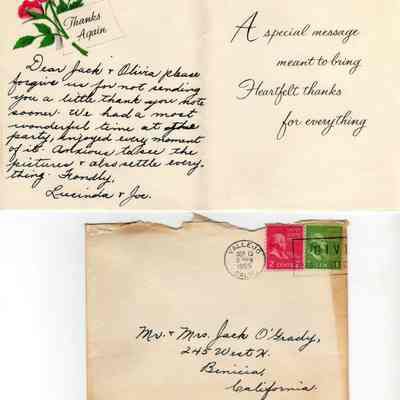 Thanks
Again
Dear Jack & Olivia please
forgive us for not sending
you a little thank you note
sooner. We had a most
wonderful time at the
party, enjoyed every moment
of it. Anxious to see the
pictures & also settle every-
thing. Fondly,
Lucinda & Joe.
A special message
meant to bring
Heartfelt thanks
for everything
VALLEJO
1955
CALIF.
2 CENTS
Mr. & Mrs. Jack O'Grady,
245 West K.
Benicia,
California.